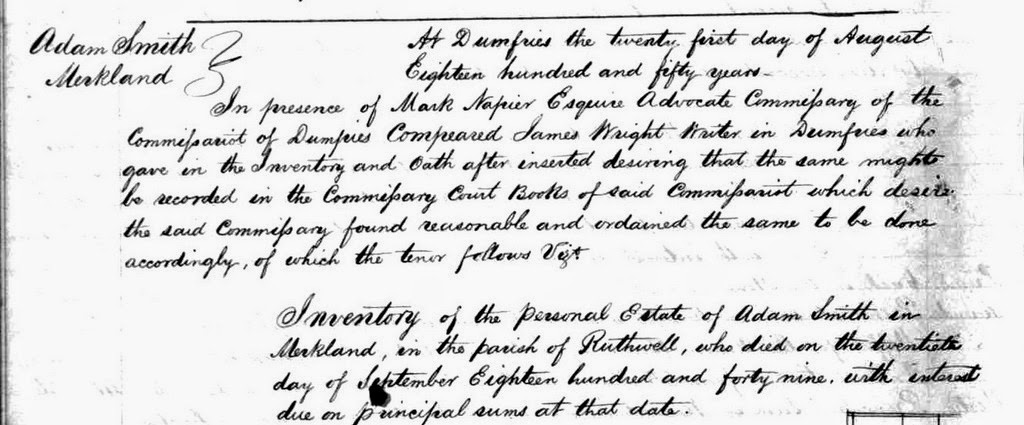 Adam Smith
Merkland
At Dumfries the twenty first day of August
Eighteen hundred and fifty years
In presence of Mark Napier Esquire Advocate Commissary of the
Commissariot of Dumfries Compeared James Wright Writer in Dumfries who
gave in the Inventory and Oath after inserted desiring that the same might
be recorded in the Commissary Court Books of said Commissariot which desire
the said Commissary found reasonable and ordained the same to be done
accordingly, of which the tenor follows Vizt
Inventory of the Personal Estate of Adam Smith in
Merkland, in the parish of Ruthwell, who died on the twentieth
day of September Eighteen hundred and forty nine, with interest
due on principal sums at that date.